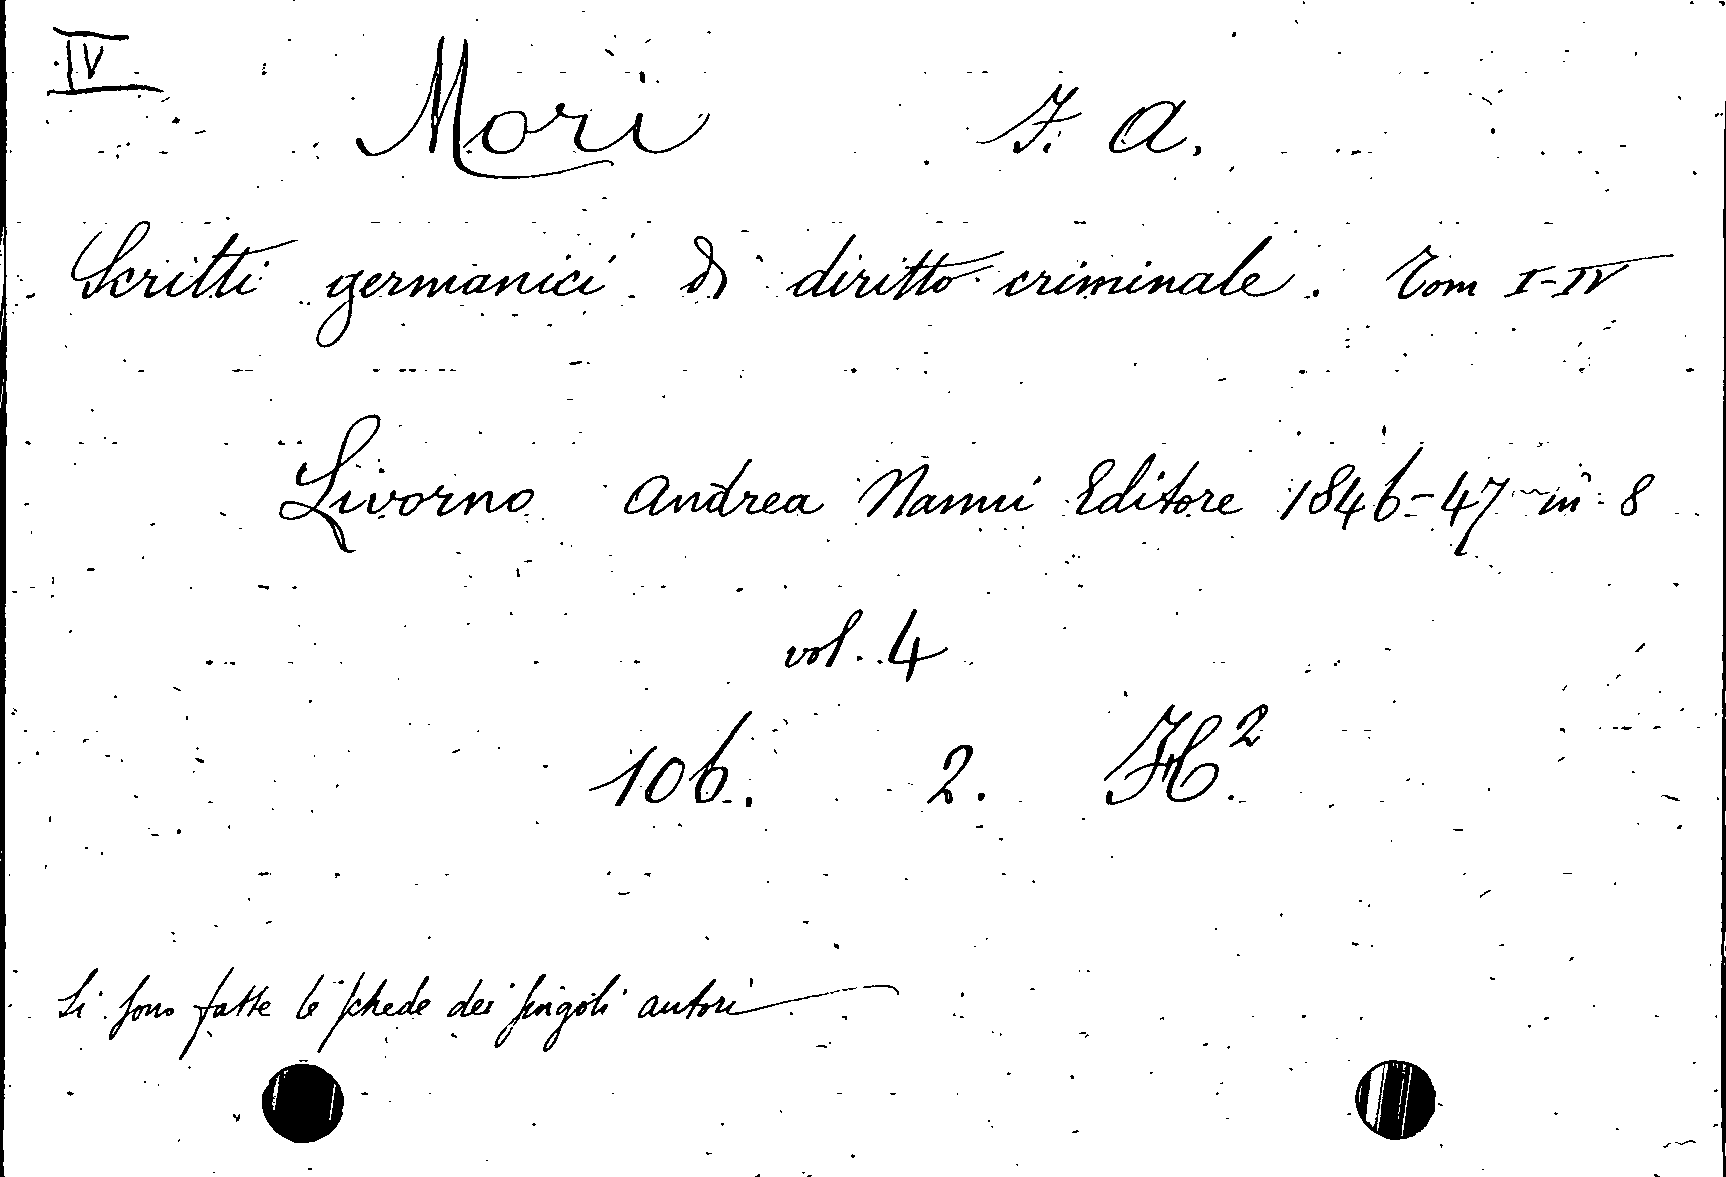 IV
Mori F. A.
Scritti germanici di diritto criminale. Tom I-IV
Livorno Andrea Nanni Editore 1846-47 in 8
vol. 4
106. 2. H².
Si sono fatte le schede dei singoli autori